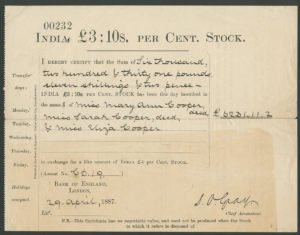 00232
INDIA £3:10s, PER CENT. STOCK.
I HEREBY CERTIFY that the Sum of Six thousand,
two hundred & thirty one pounds
eleven shillings & two pence
INDIA £3:10s, PER CENT. STOCK has been this day inscribed in
the name of Miss Mary Ann Cooper, decd £6231.11.2
Miss Sarah Cooper, decd,
& Miss Eliza Cooper
in exchange for a like amount of INDIA £4 per CENT. STOCK.
BANK OF ENGLAND,
LONDON,
29 April, 1887.
Chief Accountant
N.B.—This Certificate has no negotiable value, and need not be produced when the Stock
to which it refers is disposed of
Transfer
days:
Monday,
Tuesday,
Wednesday,
Thursday,
Friday.
Holidays
excepted.